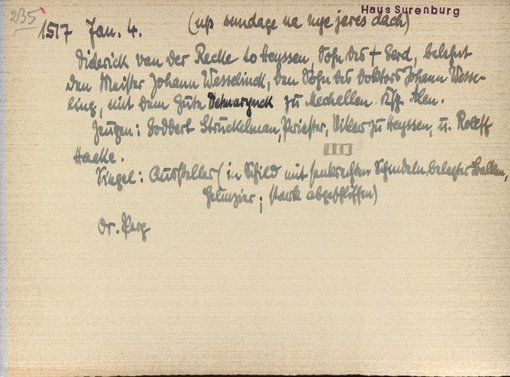 235
Haus Surenburg
1517 Jan. 4. (ups sundage na nye jares dach)
Diderick van der Recke to Heyssen, Sohn des † Gerd, belehnt
den Meister Johann Wesselinck, den Sohn des Doktors Johann Wesse-
ling, mit dem Gute Detmarynck zu Mechellen Ksp. Alen.
Zeugen: Goddert Struckelman, Priester, Vikar zu Heyssen, u. Roleff
Hacke.
Siegel: Aussteller (im Schild mit senkrechten Schindeln belegter Balken,
Helmzier; stark abgeschliffen)
Or. Perg